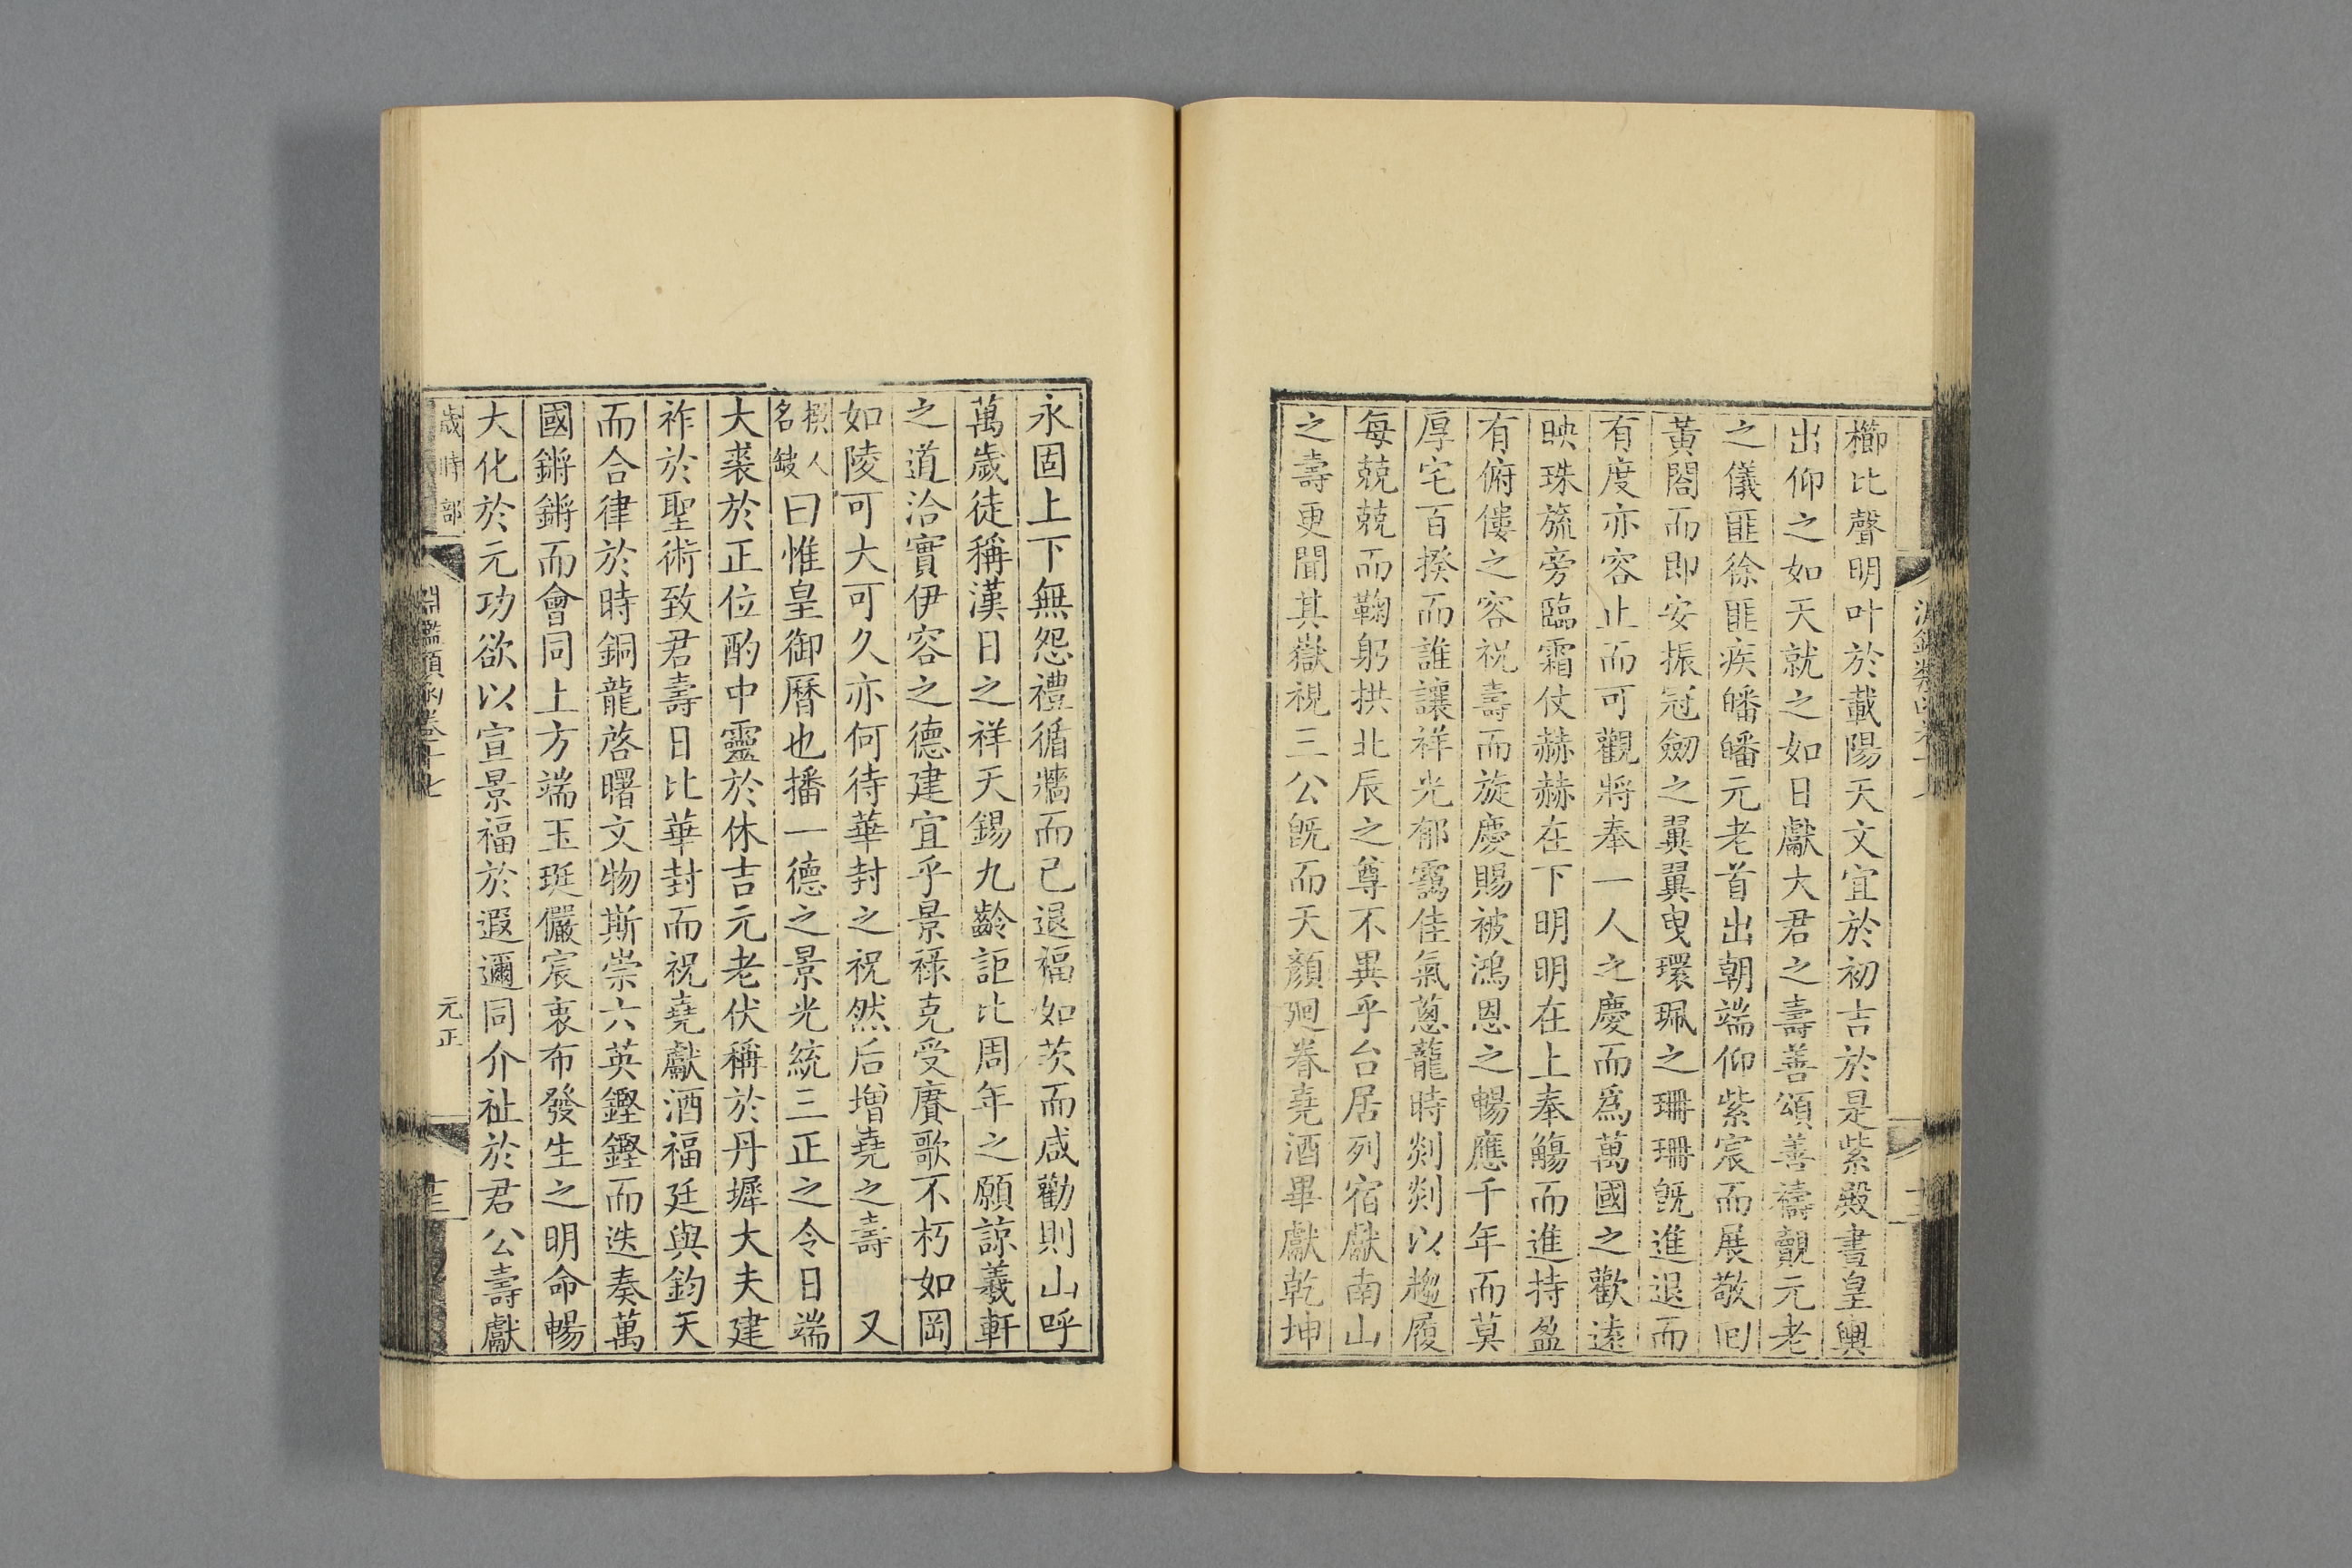 櫛比聲明叶於載陽天文宜於初吉於是紫殿晝皇輿
出仰之如天就之如日獻大君之壽善頌善禱觀元老
之儀匪徐匪疾皤皤元老首出朝端仰紫宸而展敬囘
黃閤而即安振冠劒之翼翼曳環珮之珊珊旣進退而
有度亦容止而可觀將奉一人之慶而爲萬國之歡遠
映珠旒旁臨霜仗赫赫在下明明在上奉觴而進持盈
有俯僂之容祝壽而旋慶賜被鴻恩之暢應千年而莫
厚宅百揆而誰讓祥光郁靄佳氣蔥蘢時剡剡以趨履
每兢兢而鞠躬拱北辰之尊不異乎台居列宿獻南山
之壽更聞其嶽視三公旣而天顏廻眷堯酒畢獻乾坤
永固上下無怨禮循牆而已退福如茨而咸勸則山呼
萬歲徒稱漢日之祥天錫九齡詎比周年之願諒羲軒
之道洽實伊容之德建宜乎景祿克受賡歌不朽如岡
如陵可大可久亦何待華封之祝然后增堯之壽 又
撰人名缺曰惟皇御曆也播一德之景光統三正之令日端
大裘於正位酌中靈於休吉元老伏稱於丹墀大夫建
祚於聖術致君壽日比華封而祝堯獻酒福廷與鈞天
而合律於時銅龍啓曙文物斯崇六英鏗鏗而迭奏萬
國鏘鏘而會同上方端玉珽儼宸衷布發生之明命暢
大化於元功欲以宣景福於遐邇同介祉於君公壽獻
歲時部 淵鑑類函卷十七 元正